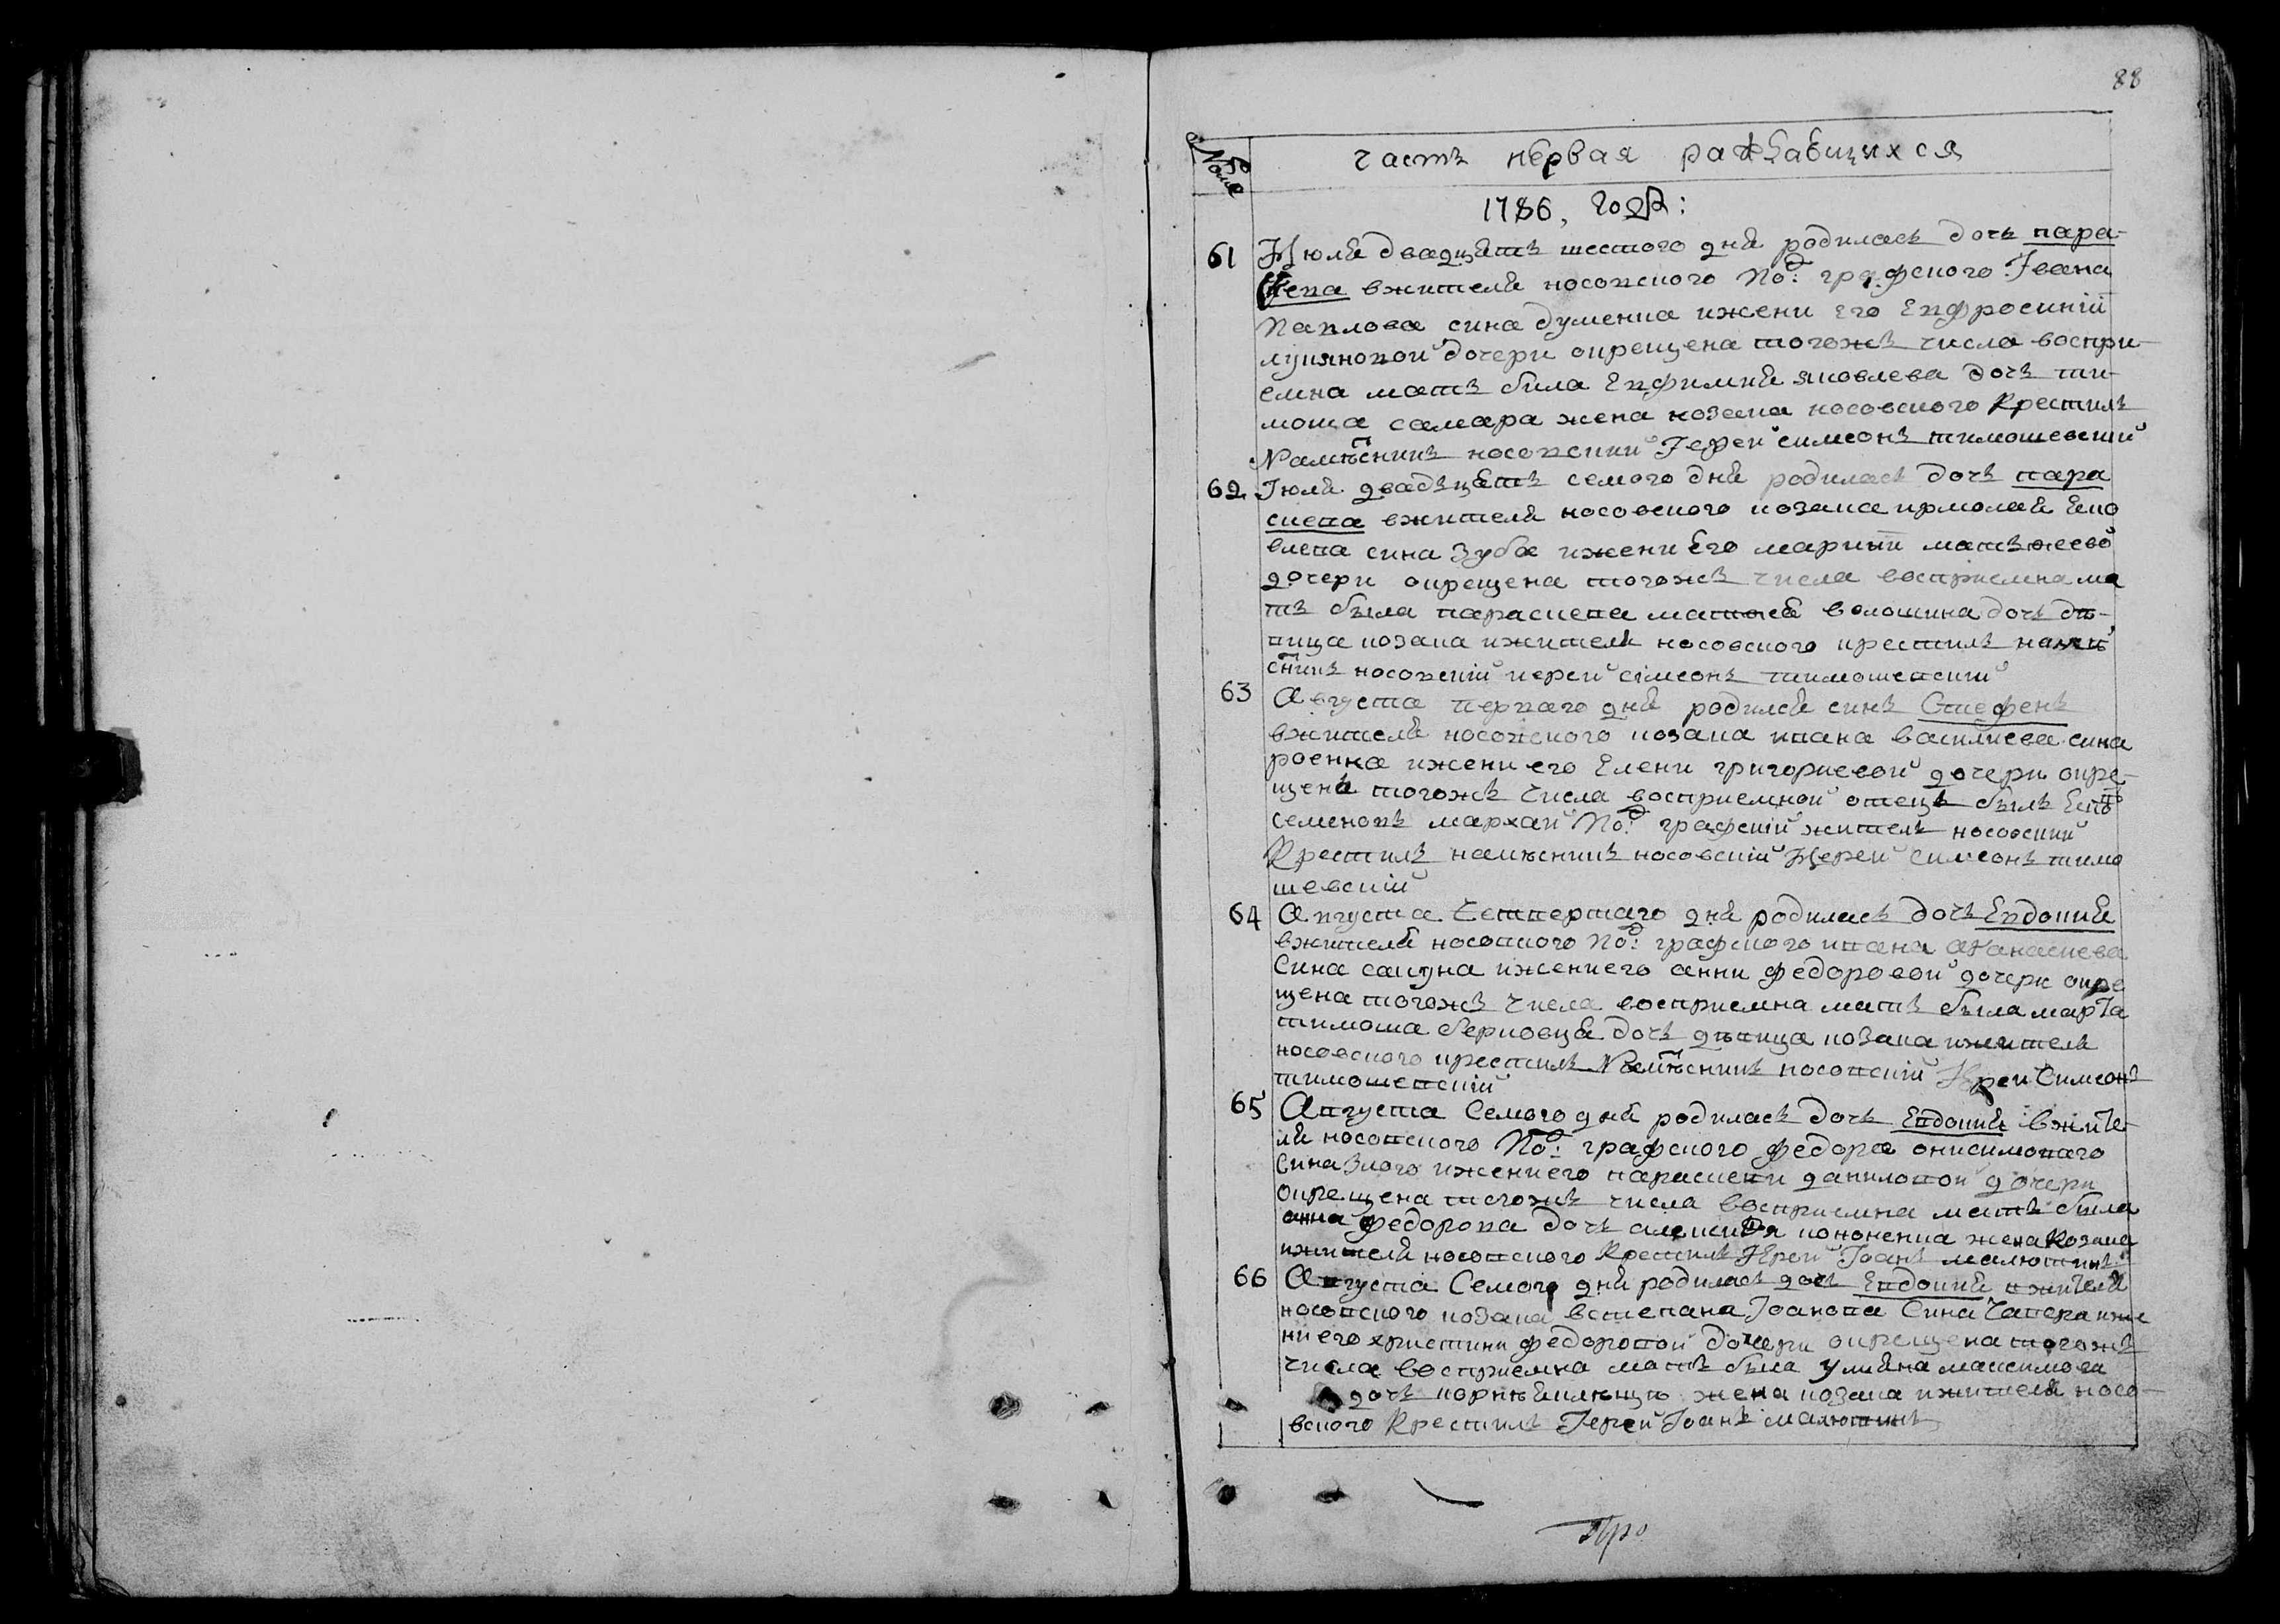 88
№
часть первая раждавшихся
1786, годъ:
61 Июля двадцать шестого дня родилась дочь пара-
скева вжителя носовского по:д графского Івана
Павлова сина думенка ижени его Евфросинїи
лукяновой дочери окрещена тогожъ числа воспри-
емна мать била Евфимия яковлева дочь ти-
моша самара жена козака носовского Крестилъ
Намѣсникъ носовский Іерей симеонъ тимошевский
62 Іюля двадъцять семого дня родилась дочь пара
скева вжителя носовского козака ярмолая Яко
влева сина Зуба ижени Его марии матвѣевой
дочери окрещена тогожъ числа восприемна ма
ть была параскева матвея волошина дочь дѣ-
вица козака ижителя носовского крестилъ намѣ
сникъ носовский иерей сімеонъ тимошевский
63 Августа первого дня родился синъ Стефенъ
вжителя носовского козака ивана василиева сина
роенка ижени его Елени григориевой дочери окре-
щенъ тогожъ числа восприемной отецъ былъ
семеновъ мархай По:д графский житель носовский
Крестилъ намѣсникъ носовский Иерей Симеонъ тимо
шевский
64 Августа Четвертаго дня родилась дочь Евдокия
вжителя носовского по:д графского ивана афанасиева
Сина сакуна ижениего анни федоровой дочери окре
щена тогожъ числа восприемна мать была марθа
тимоша берковца дочь дѣвица козака ижителя
носовского крестилъ Намѣсникъ носовский Иерей Симеонъ
тимошевский
65 Августа Семого дня родилась дочь Евдокия вжите-
ля носовского По:д графского федора онисимоваго
Сина Злого ижениего параскеви даниловой дочери
окрещена тогожъ числа восприемна мать была
анна федорова дочь алексия кононенка жена Козака
ижителя носовского Крестилъ Иерей Іоанъ малютинъ
66 Августа Семого дня родилась дочь Евдокия вжителя
носовского козака встепана Іоанова Сина Чапера иже
ни его христини федоровой дочери окрещена тогожъ
числа восприемна мать была улияна максимова
дочь жена козака ижителя носо-
вского Крестилъ Іерей Іоанъ малютинъ